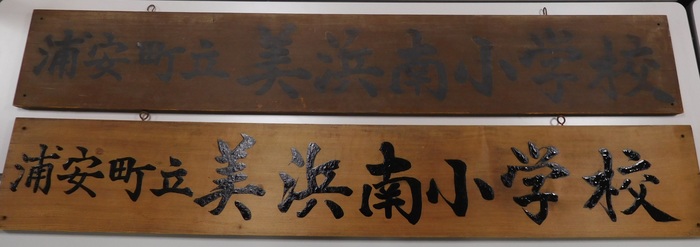 浦安町立美浜南小学校
浦安町立美浜南小学校